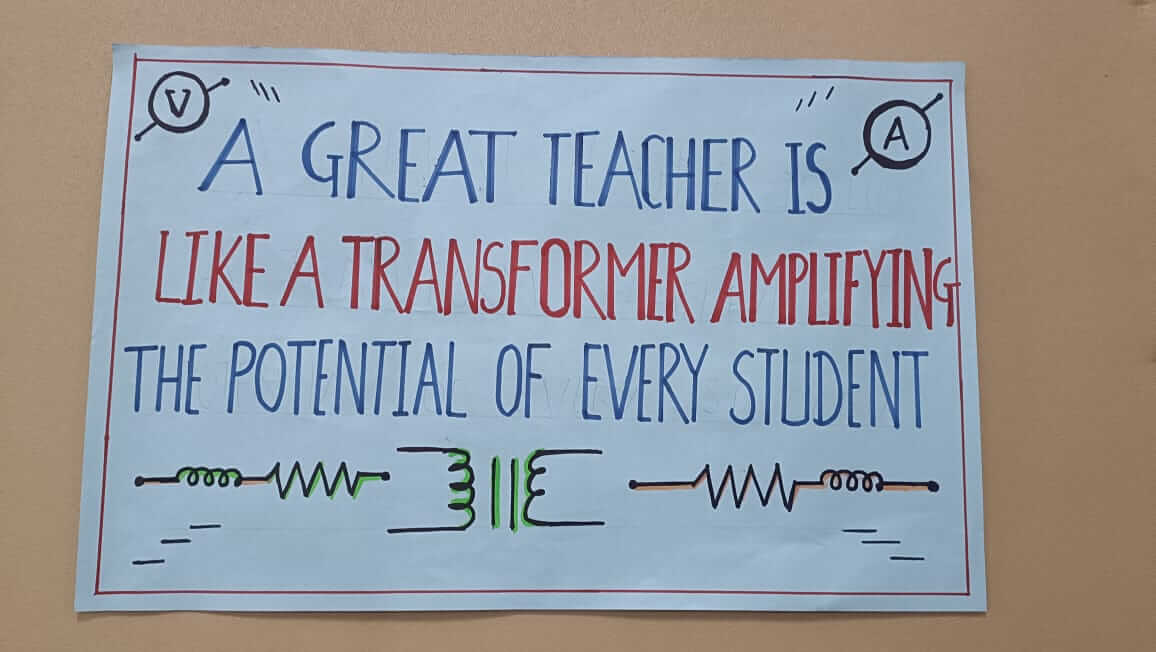 V
A
A GREAT TEACHER IS
LIKE A TRANSFORMER AMPLIFYING
THE POTENTIAL OF EVERY STUDENT